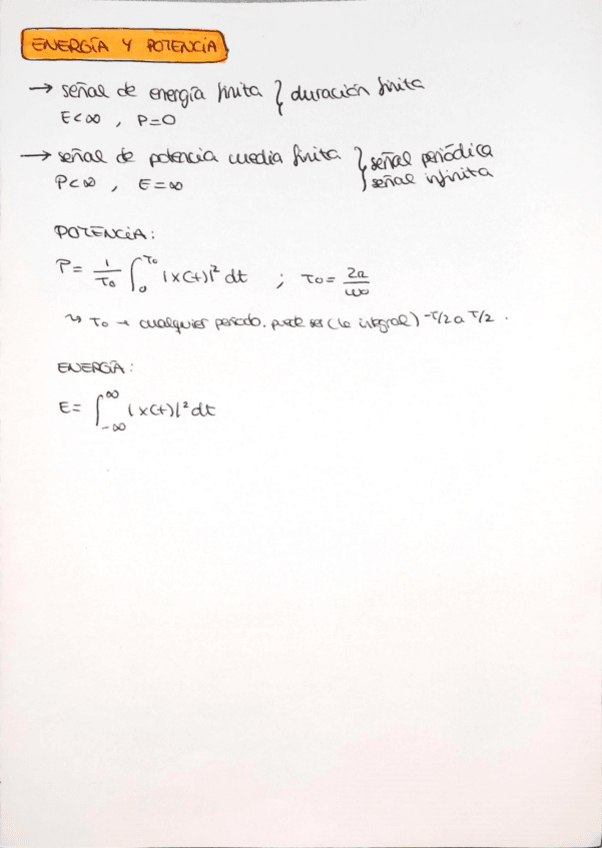 ENERGÍA Y POTENCIA
→ señal de energía finita } duración finita
E<∞ , P=0
→ señal de potencia media finita } señal periódica
señal infinita
P<∞ , E=∞
POTENCIA:
P= 1/T₀ ∫₀^T₀ |x(t)|² dt ; T₀= 2π/ω₀
↳ T₀ → cualquier periodo. puede ser (la integral) -T/2 a T/2.
ENERGÍA:
E= ∫₋∞^∞ |x(t)|² dt